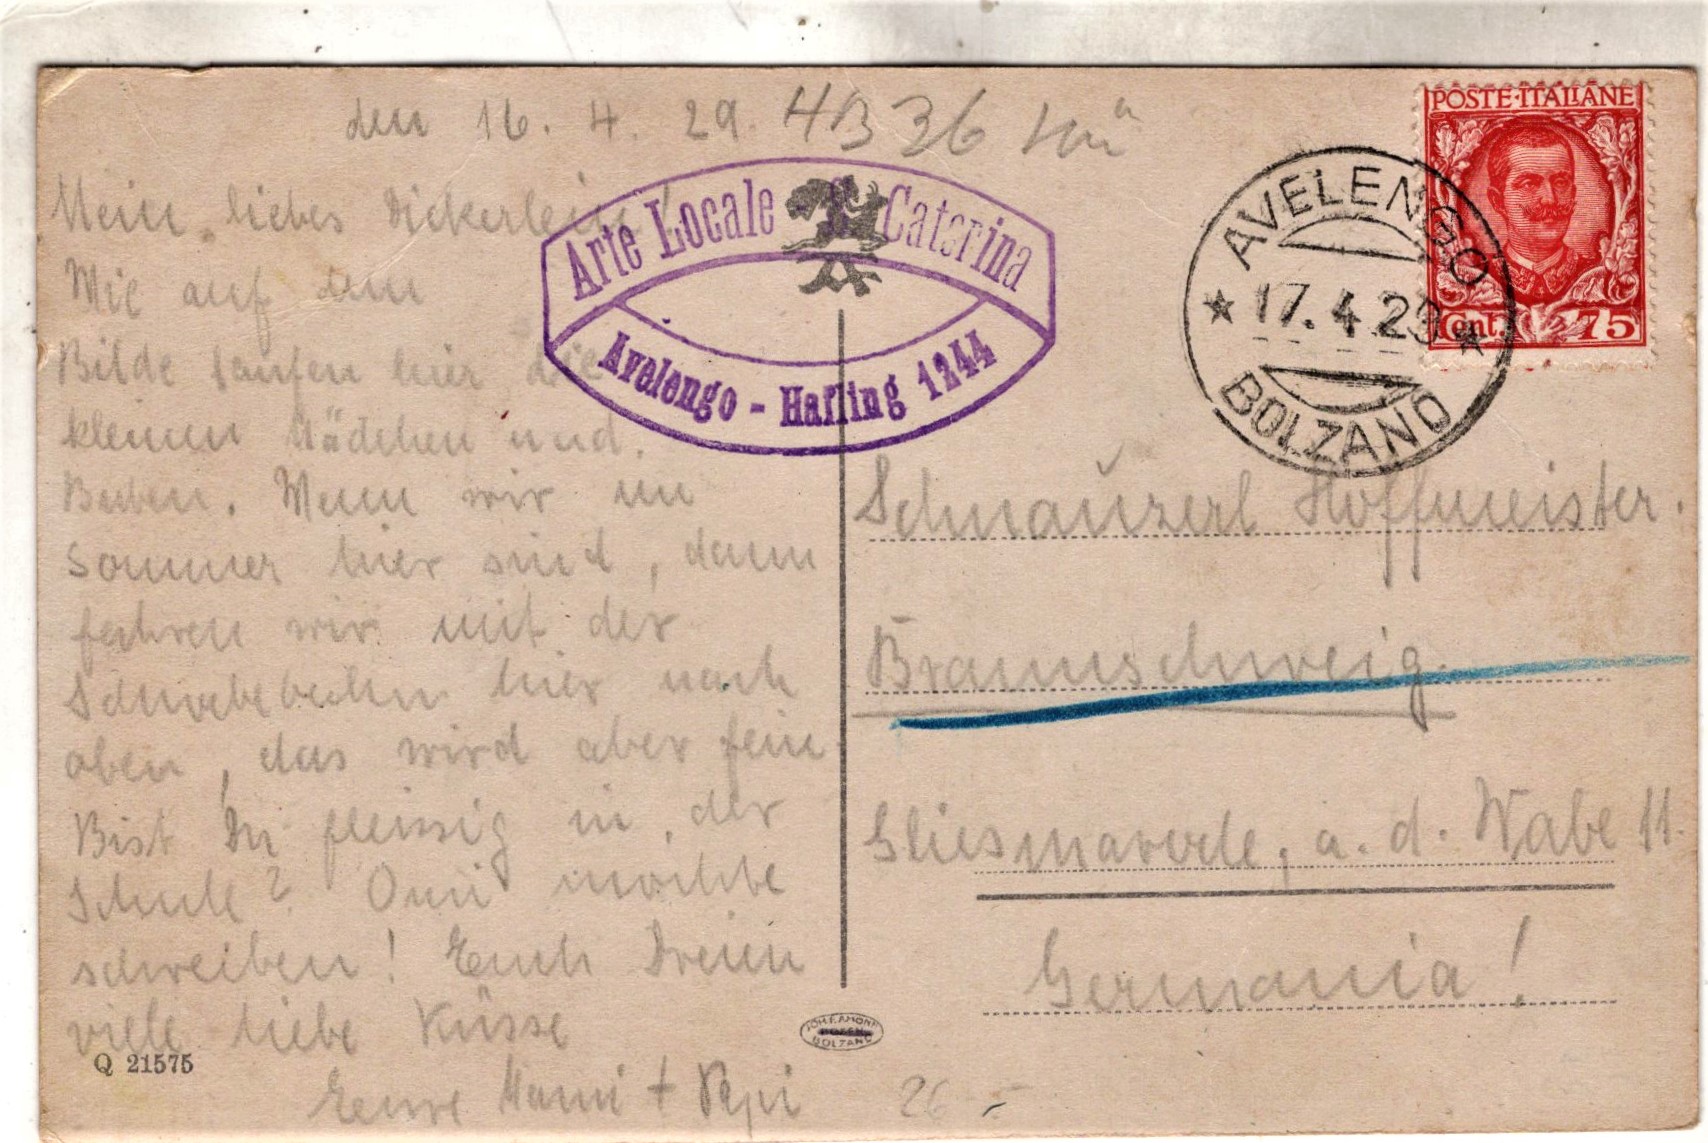 den 16. 4. 29. HB 36
Mein liebes Dickerlein!
Wie auf dem
Bilde laufen hier die
kleinen Mädchen und
Buben. Wenn wir im
Sommer hier sind, dann
fahren wir mit der
Schwebebahn hier nach
oben, das wird aber fein.
Bist Du fleissig in der
Schule? Omi möchte
schreiben! Euch Dreien
viele liebe Küsse
Eure Mami + Papi
Q 21575
Arte Locale - S. Caterina
Avelengo - Hafling 1244
POSTE·ITALIANE
Cent. 75
AVELENGO
17.4.29
BOLZANO
Schnaŭzerl Hoffmeister.
Braunschweig.
Gliesmarode, a. d. Wabe 11.
Germania!
JOH.F.AMONN
BOZEN
BOLZANO
26 -